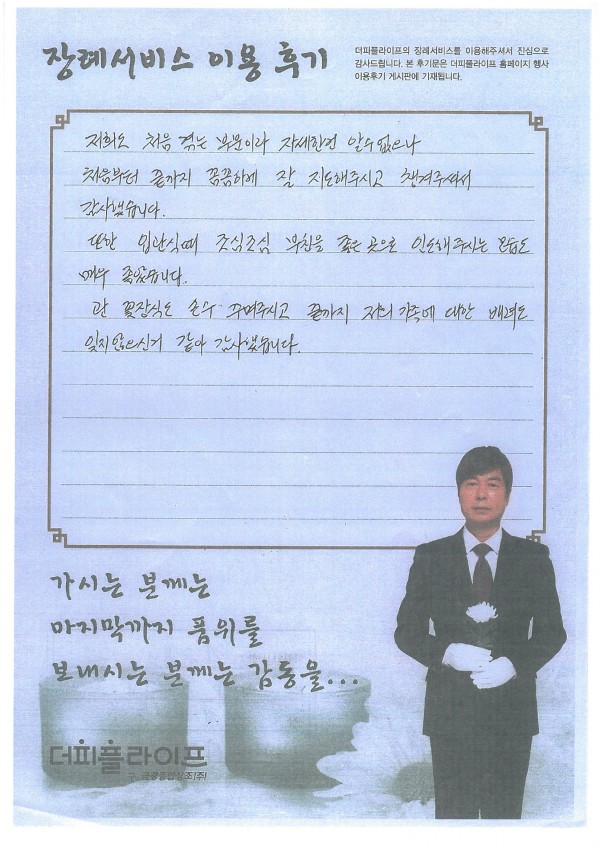 장례서비스 이용 후기
더피플라이프의 장례서비스를 이용해주셔서 진심으로
감사드립니다. 본 후기문은 더피플라이프 홈페이지 행사
이용후기 게시판에 기재됩니다.
저희도 처음 겪는 부분이라 자세한건 알수없으나
처음부터 끝까지 꼼꼼하게 잘 지도해주시고 챙겨주셔서
감사했습니다.
또한 입관식때 조심조심 부친을 좋은 곳으로 인도해주시는 모습도
매우 좋았습니다.
관 꽃장식도 손수 꾸며주시고 끝까지 저희가족에 대한 배려도
잊지않으신거 같아 감사했습니다.
가시는 분께는
마지막까지 품위를
보내시는 분께는 감동을...
더피플라이프
구. 금강종합상조(주)